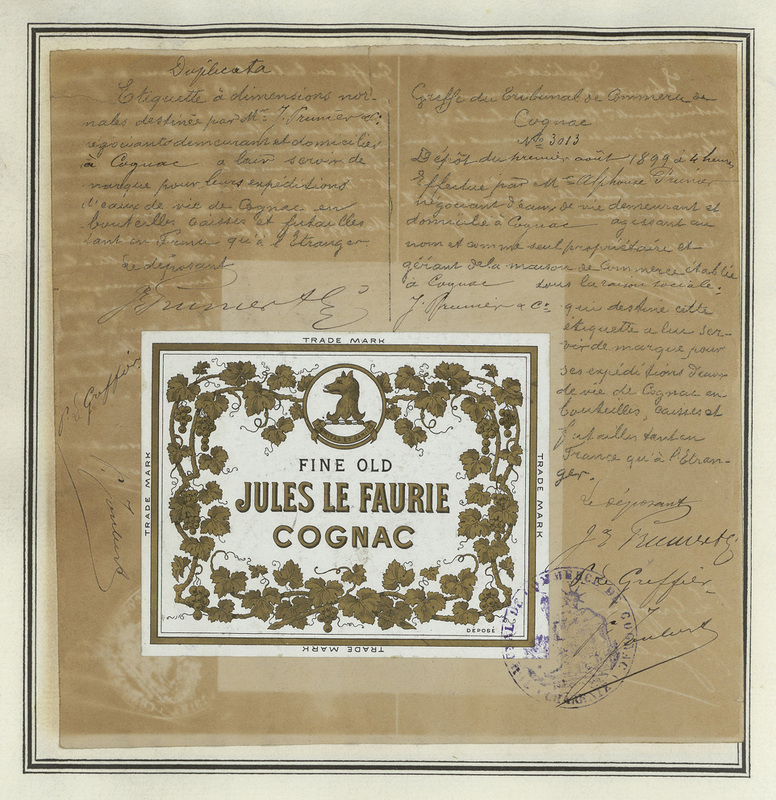 Duplicata
Etiquette à dimensions nor-
males destinée par Mrs J. Prunier & Co
négociants demeurant et domiciliés
à Cognac à leur servir de
marque pour leurs expéditions
d'eaux de vie de Cognac en
bouteilles caisses et futailles
tant en France qu'à l'Etranger
Le déposant
J Prunier & Co
Pr le Greffier
J. Joubert
Greffe du Tribunal de Commerce de
Cognac
No 3013
Dépôt du premier août 1899 à 4 heures
Effectué par Mr Alphonse Prunier
négociant d'eaux de vie demeurant et
domicilié à Cognac agissant au
nom et comme seul propriétaire et
gérant de la maison de Commerce établie
à Cognac sous la raison sociale:
J. Prunier & Co qui destine cette
étiquette à lui ser-
vir de marque pour
ses expéditions d'eaux
de vie de Cognac en
bouteilles, caisses et
futailles tant en
France qu'à l'Etran-
ger.
Le déposant
J Prunier & Co
Pr le Greffier
J. Joubert
TRADE MARK
TRADE MARK
TRADE MARK
TRADE MARK
FINE OLD
JULES LE FAURIE
COGNAC
DEPOSÉ
TRIBUNAL DE COMMERCE DE COGNAC
CHARENTE